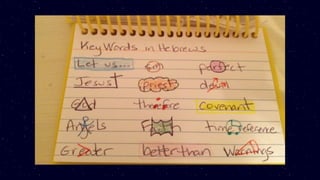 Key Words in Hebrews
Let us... son perfect
Jesus priest down
God therefore covenant
Angels Faith time reference
Greater better than Warnings